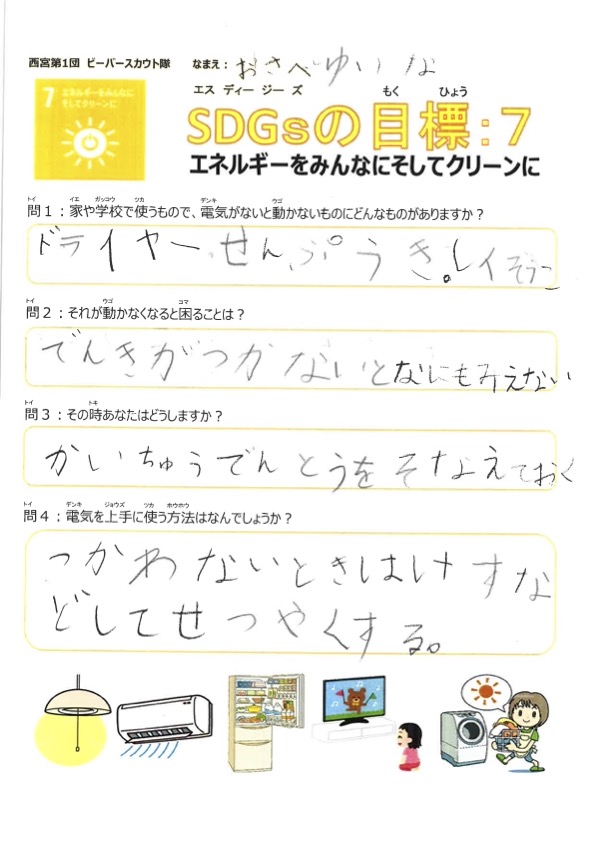 西宮第1団 ビーバースカウト隊 なまえ: おさべゆいな
7 エネルギーをみんなに
そしてクリーンに
エス ディー ジー ズ もく ひょう
SDGsの目標:7
エネルギーをみんなにそしてクリーンに
トイ イエ ガッコウ ツカ デンキ ウゴ
問1:家や学校で使うもので、電気がないと動かないものにどんなものがありますか?
ドライヤー、せんぷうき。レイぞうこ
トイ ウゴ コマ
問2:それが動かなくなると困ることは?
でんきがつかないとなにもみえない
トイ トキ
問3:その時あなたはどうしますか?
かいちゅうでんとうをそなえておく
トイ デンキ ジョウズ ツカ ホウホウ
問4:電気を上手に使う方法はなんでしょうか?
つかわないときはけすな
どしてせつやくする。